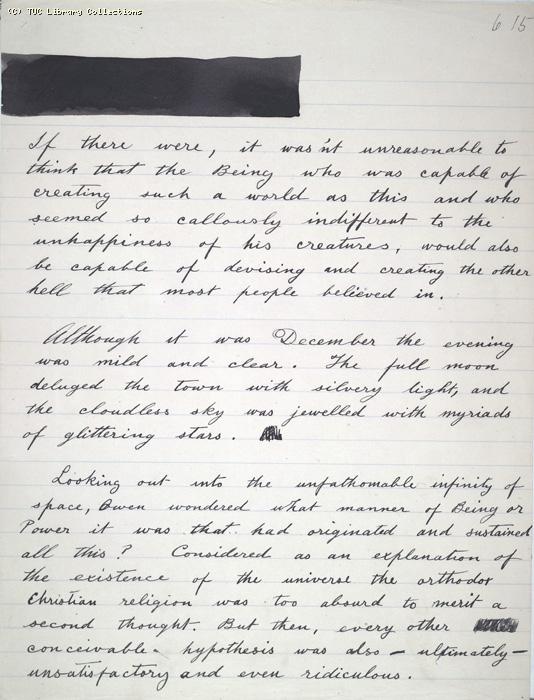 (C) TUC Library Collections
6 15
If there were, it was'nt unreasonable to
think that the Being who was capable of
creating such a world as this and who
seemed so callously indifferent to the
unhappiness of his creatures, would also
be capable of devising and creating the other
hell that most people believed in.
Although it was December the evening
was mild and clear. The full moon
deluged the town with silvery light, and
the cloudless sky was jewelled with myriads
of glittering stars.
Looking out into the unfathomable infinity of
space, Owen wondered what manner of Being or
Power it was that had originated and sustained
all this? Considered as an explanation of
the existence of the universe the orthodox
Christian religion was too absurd to merit a
second thought. But then, every other
conceivable hypothesis was also - ultimately -
unsatisfactory and even ridiculous.